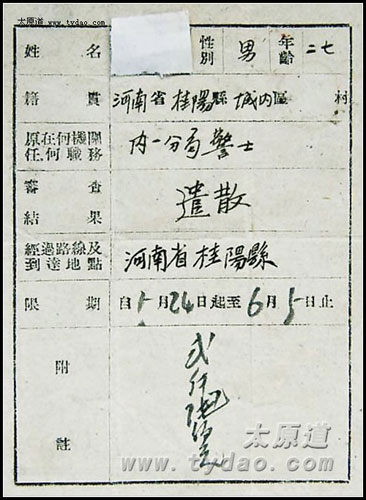 太原道
www.tydao.com
姓名 性別 男 年齡 二七
籍貫 河南省桂陽縣城內區 村
原在何機關
任何職務 內一分局警士
審查
結果 遣散
經過路線及
到達地點 河南省桂陽縣
限期 自5月24日起至6月5日止
附註
太原道
www.tydao.com